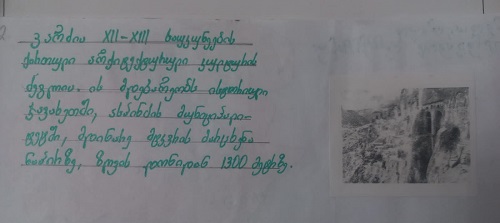 ვარძია XII-XIII საუკუნეების
ქართული არქიტექტურული კულტურის
ძეგლია. ის მდებარეობს ისტორიულ
ჯავახეთში, ასპინძის მუნიციპალი-
ტეტში, მდინარე მტკვრის მარცხენა
ნაპირზე, ზღვის დონიდან 1300 მეტრზე.